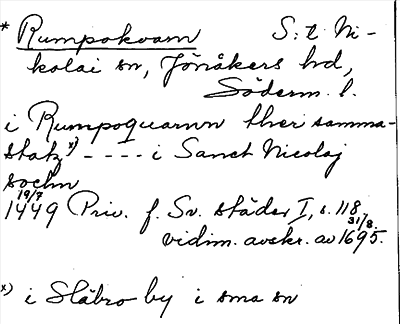 * Rumpokvarn S:t Ni-
kolai sn, Jönåkers hd,
Söderm. l.
i Rumpoquarnn ther samma-
statz x) - - - - i Sanct Nicolaj
sochn
19/7
1449 Priv. f. Sv. städer I, s. 118
31/8.
vidim. avskr. av 1695.
x) i Släbro by i sma sn